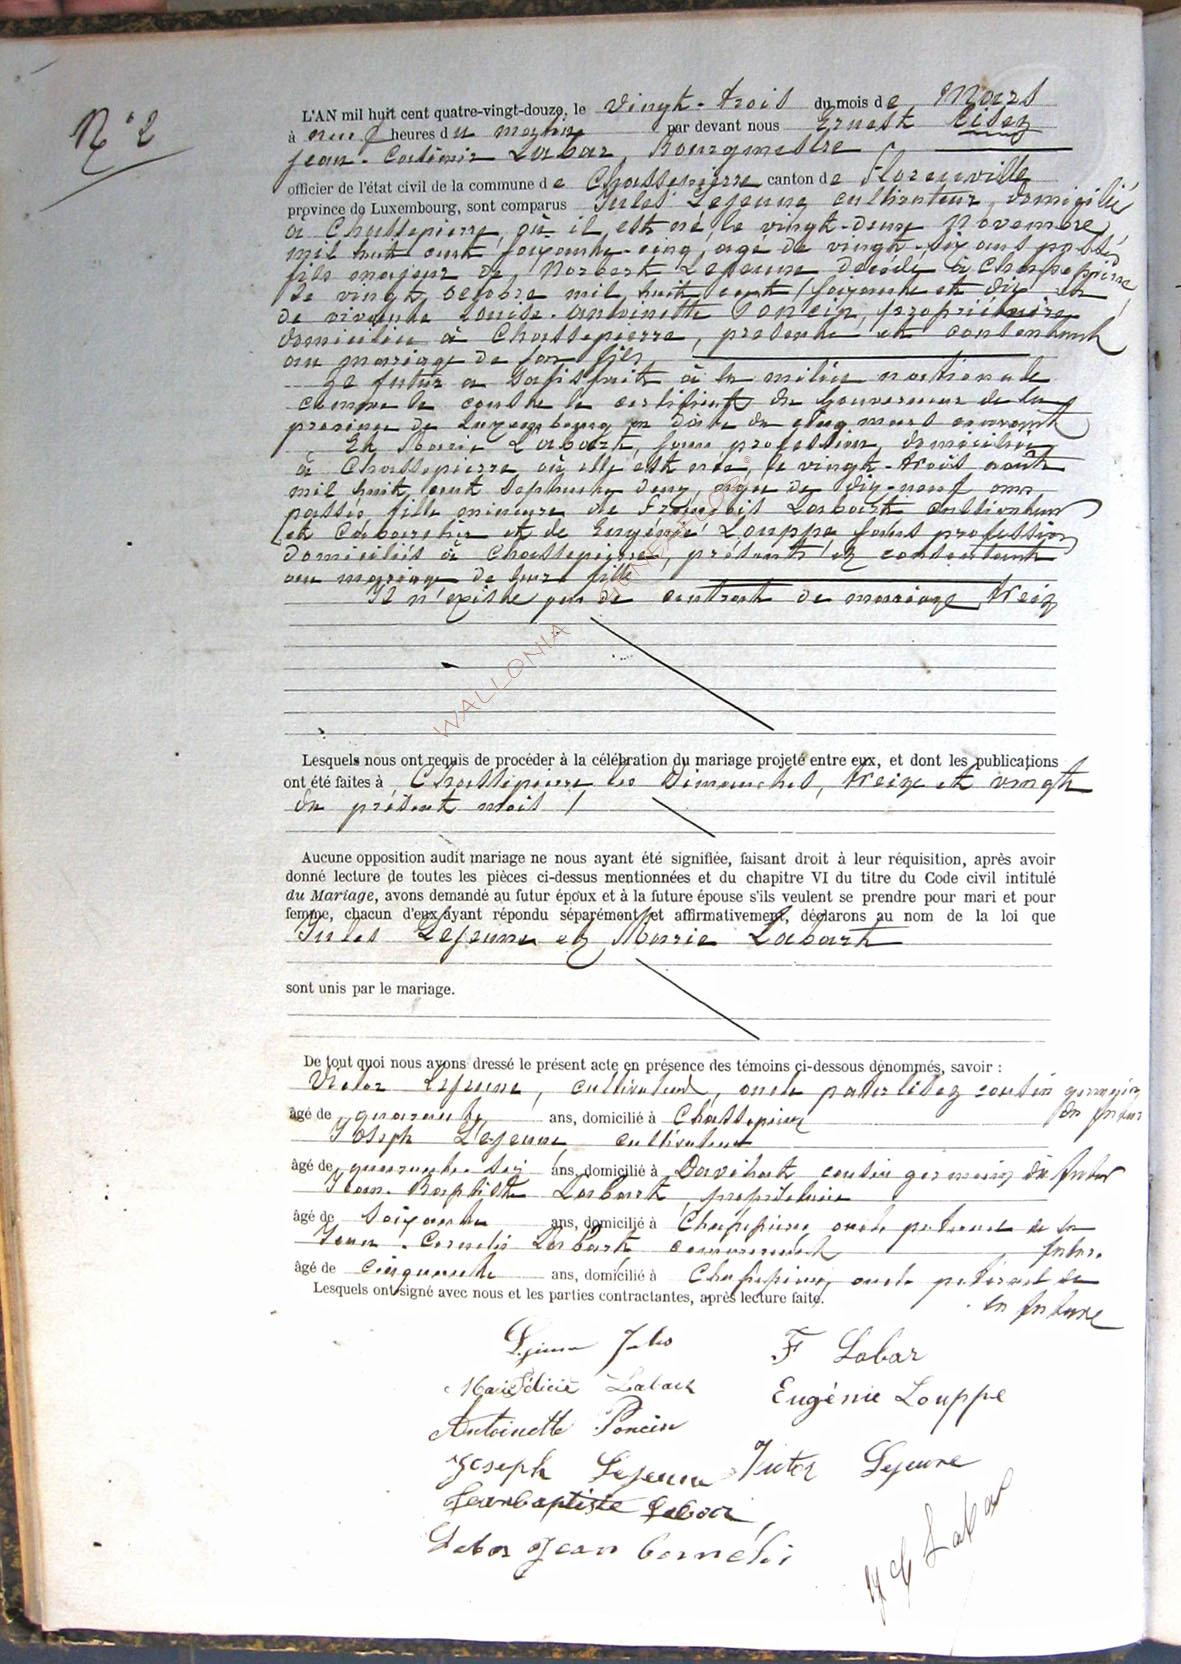 N° 2
L'AN mil huit cent quatre-vingt-douze, le vingt-trois du mois de Mars
à neuf heures du matin par devant nous Ernest lisez
Jean-Casimir Labar, Bourgmestre
officier de l'état civil de la commune de Chassepierre canton de Florenville
province de Luxembourg, sont comparus Jules Lejeune cultivateur, domicilié
à Chassepierre, où il est né le vingt-deux Novembre
mil huit cent soixante-cinq, agé de vingt-six ans passé,
fils majeur de Norbert Lejeune décédé à Chassepierre
le vingt octobre mil huit cent soixante et dix et
de vivante Louise-Antoinette Poncin, propriétaire
domiciliée à Chassepierre, présente et consentant
au mariage de son fils
Le futur a satisfait à la milice nationale
comme le conste le certificat du Gouverneur de la
province de Luxembourg en date du cinq mars courant
Et Marie Labart, sans profession, domiciliée
à Chassepierre, où elle est née, le vingt-trois août
mil huit cent septante deux, agée de dix-neuf ans
passés, fille mineure de François Labart cultivateur
et cabaretier et de Eugénie Louppe sans profession
domiciliés à Chassepierre, présents et consentant
au mariage de leur fille
Il n'existe pas de contrat de mariage
Lesquels nous ont requis de procéder à la célébration du mariage projeté entre eux, et dont les publications
ont été faites à Chassepierre les Dimanches, treize et vingt
du présent mois /
Aucune opposition audit mariage ne nous ayant été signifiée, faisant droit à leur réquisition, après avoir
donné lecture de toutes les pièces ci-dessus mentionnées et du chapitre VI du titre du Code civil intitulé
du Mariage, avons demandé au futur époux et à la future épouse s'ils veulent se prendre pour mari et pour
femme, chacun d'eux ayant répondu séparément et affirmativement, déclarons au nom de la loi que
Jules Lejeune et Marie Labart
sont unis par le mariage.
De tout quoi nous avons dressé le présent acte en présence des témoins ci-dessous dénommés, savoir :
Victor Lejeune, cultivateur, oncle pater lisez cousin germain
âgé de quarante ans, domicilié à Chassepierre du futur
Joseph Lejeune, cultivateur
âgé de quarante-six ans, domicilié à cousin germain du futur
Jean-Baptiste Labart, propriétaire
âgé de soixante ans, domicilié à Chassepierre, oncle paternel de la
future
Jean-Corneli Labart
âgé de cinquante ans, domicilié à Chassepierre, oncle paternel de
la future
Lesquels ont signé avec nous et les parties contractantes, après lecture faite.
Lejeune Jules
F Labar
Marie Félicie Labart
Eugénie Louppe
Antoinette Poncin
Joseph Lejeune Victor Lejeune
Jean baptiste Labar
Labar Jean Corneli
J C Labar
WALLONIA